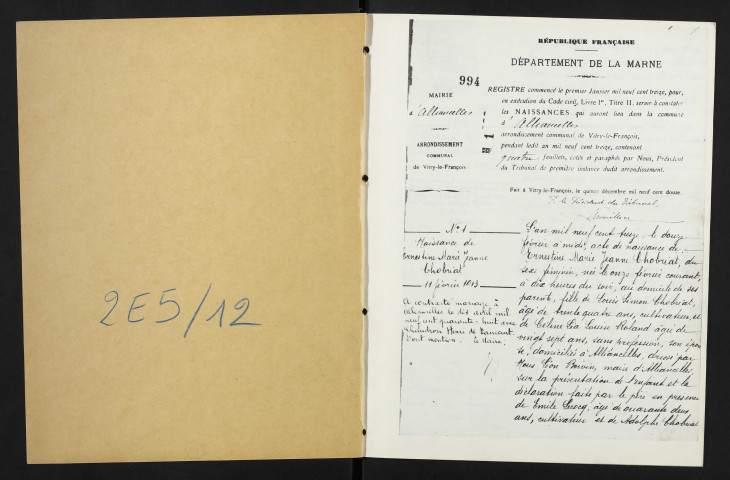 2E5/12
RÉPUBLIQUE FRANÇAISE
DÉPARTEMENT DE LA MARNE
994
MAIRIE
d'Alliancelles
ARRONDISSEMENT
COMMUNAL
de Vitry-le-François
REGISTRE commencé le premier Janvier mil neuf cent treize, pour,
en exécution du Code civil, Livre Ier, Titre II, servir à constater
les NAISSANCES qui auront lieu dans la commune
d'Alliancelles
arrondissement communal de Vitry-le-François,
pendant ledit an mil neuf cent treize, contenant
quatre feuillets, cotés et paraphés par Nous, Président
du Tribunal de première instance dudit arrondissement.
Fait à Vitry-le-François, le quinze décembre mil neuf cent douze.
le Président du Tribunal,
N° 1
Naissance de
Ernestine Marie Jeanne
Chobriat
11 février 1913
A contracté mariage à
le dix avril mil
neuf cent quarante-huit avec
Henri de
Dont mention. Le Maire:
L'an mil neuf cent treize, le douze
février à midi, acte de naissance de
Ernestine Marie Jeanne Chobriat, du
sexe féminin, née le onze février courant,
à dix heures du soir, au domicile de ses
parents, fille de Louis Simon Chobriat,
âgé de trente quatre ans, cultivateur, et
de Céline Louise Roland âgée de
vingt sept ans, sans profession, son épou
se, domiciliés à Alliancelles, dressé par
Nous Léon Boivin, maire d'Alliancelles
sur la présentation de l'enfant et la
déclaration faite par le père en présence
de Emile âgé de quarante deux
ans, cultivateur et de Adolphe Chobriat